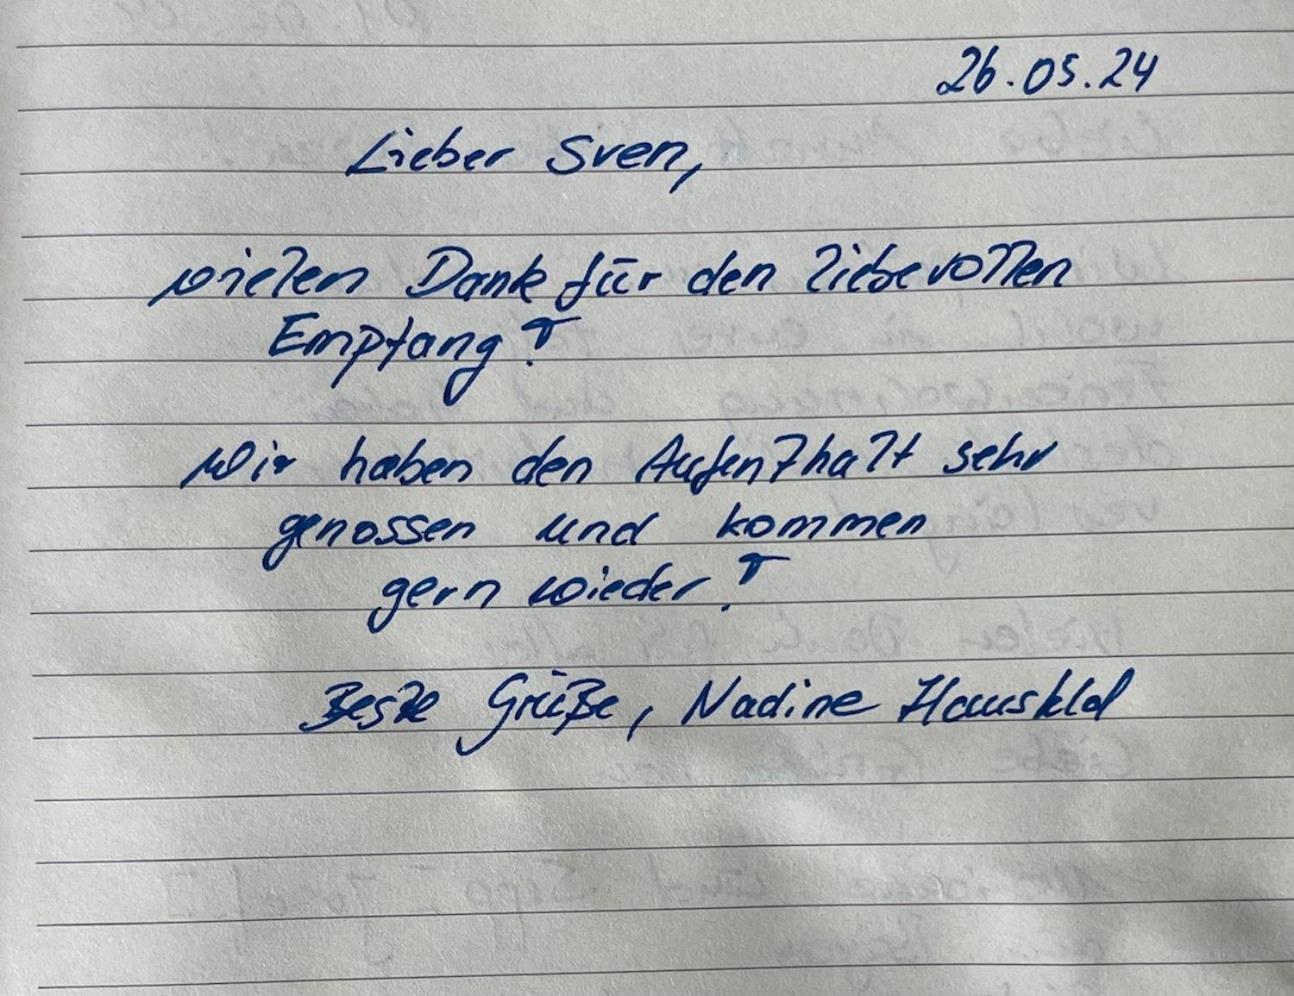 26.05.24
Lieber Sven,
vielen Dank für den liebevollen
Empfang!
Wir haben den Aufenthalt sehr
genossen und kommen
gern wieder!
Beste Grüße, Nadine